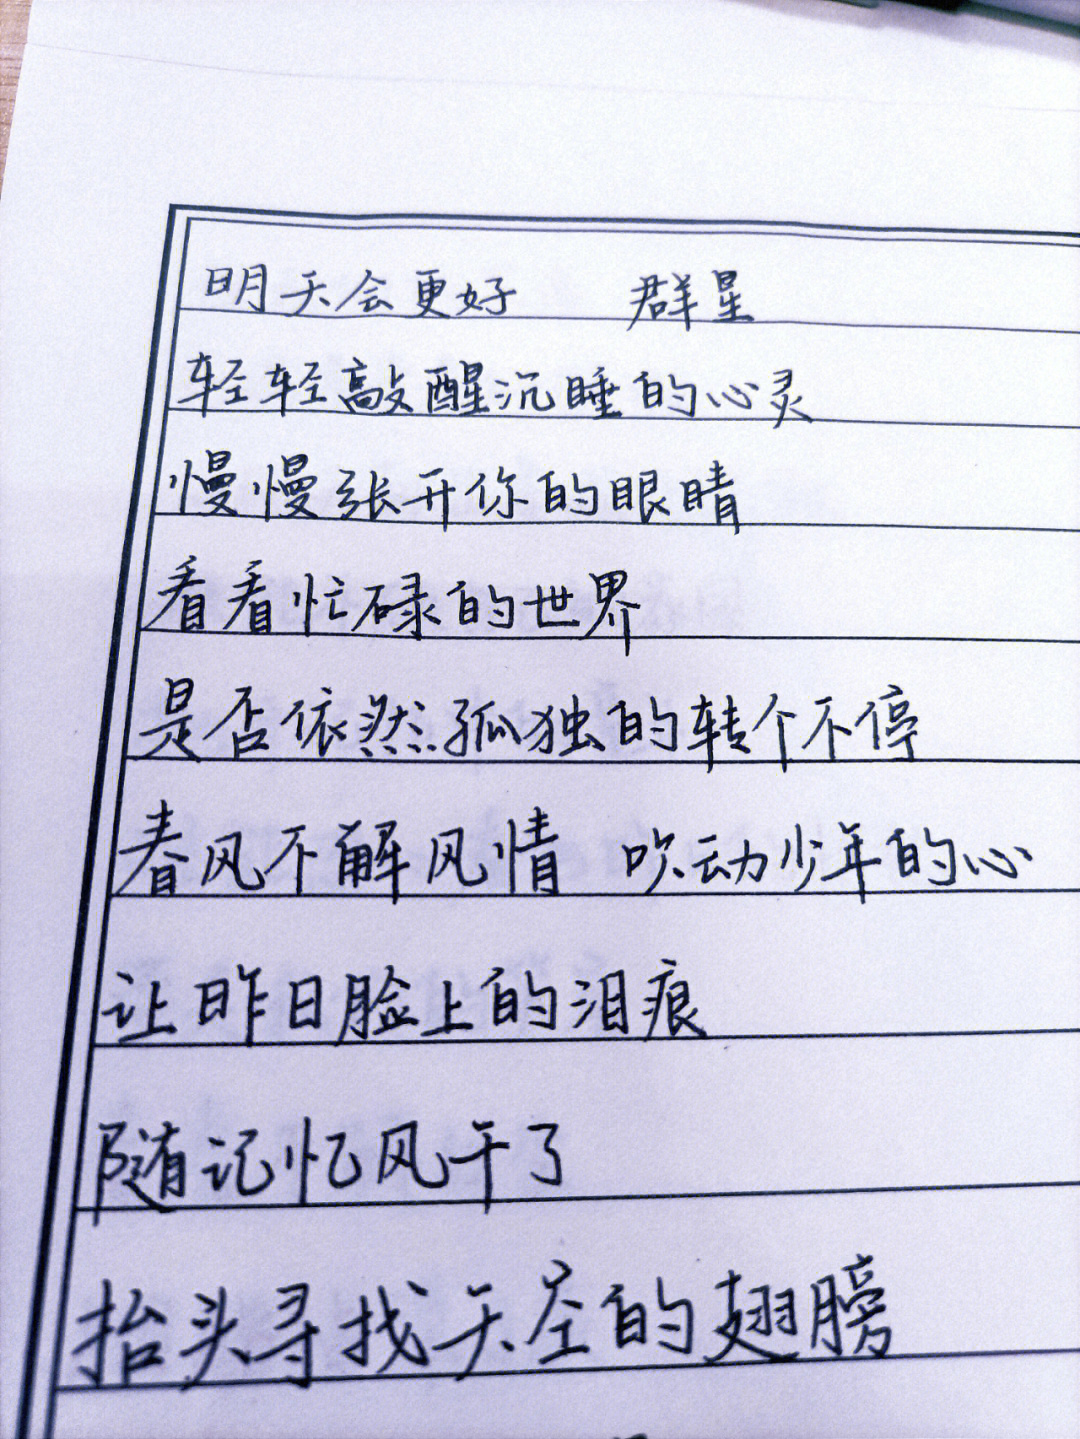 明天会更好 群星
轻轻敲醒沉睡的心灵
慢慢张开你的眼睛
看看忙碌的世界
是否依然孤独的转个不停
春风不解风情 吹动少年的心
让昨日脸上的泪痕
随记忆风干了
抬头寻找天空的翅膀